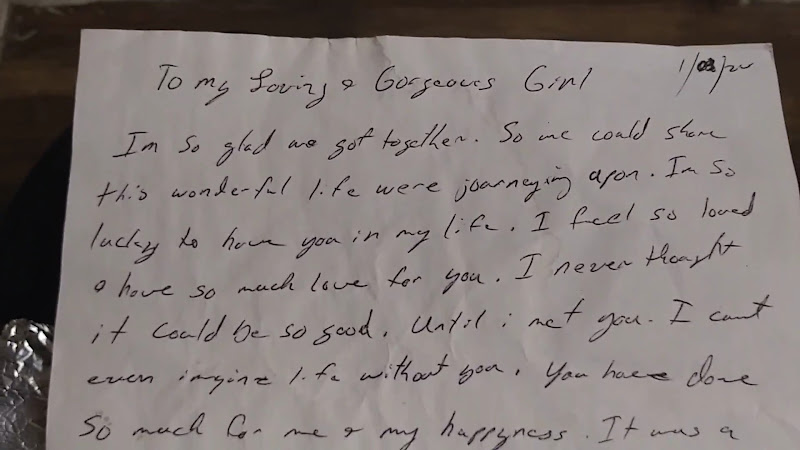 1/03/20
To my Loving & Gorgeous Girl
Im so glad we got together. So we could share
this wonderful life were journeying apon. Im so
lucky to have you in my life. I feel so loved
& have so much love for you. I never thought
it could be so good. Until i met you. I cant
even imgine life without you. You have done
So much for me & my happyness. It was a